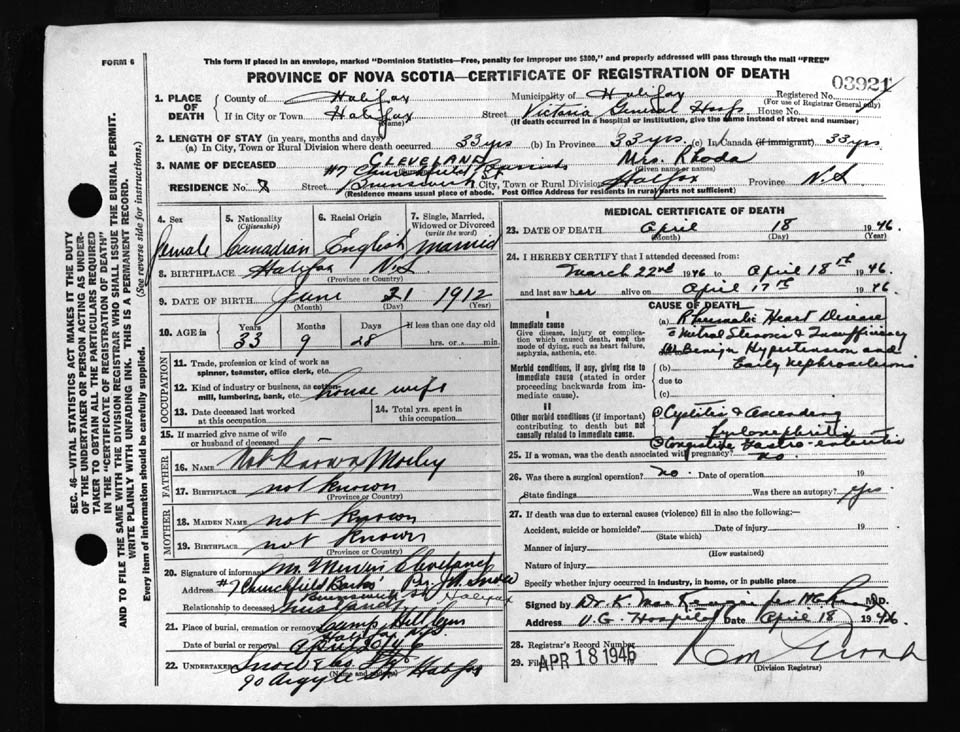 FORM 6
This form if placed in an envelope, marked "Dominion Statistics—Free, penalty for improper use $300," and properly addressed will pass through the mail "FREE"
PROVINCE OF NOVA SCOTIA—CERTIFICATE OF REGISTRATION OF DEATH
03921
1. PLACE OF DEATH
County of Halifax Municipality of Halifax Registered No.
(For use of Registrar General only)
If in City or Town Halifax Street Victoria General Hosp. House No.
(Name) (If death occurred in a hospital or institution, give the name instead of street and number)
2. LENGTH OF STAY (in years, months and days)
(a) In City, Town or Rural Division where death occurred 33 yrs (b) In Province 33 yrs. (c) In Canada (if immigrant) 33 yrs
3. NAME OF DECEASED CLEVELAND Mrs. Rhoda
(Given name or names)
#7 Churchfield St
RESIDENCE No. Street Brunswick City, Town or Rural Division Halifax Province N.S
(Residence means usual place of abode. Post Office Address for residents in rural parts not sufficient)
4. Sex female
5. Nationality (Citizenship) Canadian
6. Racial Origin English
7. Single, Married, Widowed or Divorced (write the word) Married
8. BIRTHPLACE Halifax N.S.
(Province or Country)
9. DATE OF BIRTH June 21 1912
(Month) (Day) (Year)
10. AGE in Years 33 Months 9 Days 28 If less than one day old
hrs. or min.
OCCUPATION
11. Trade, profession or kind of work as spinner, teamster, office clerk, etc.
12. Kind of industry or business, as cotton mill, lumbering, bank, etc. house wife
13. Date deceased last worked at this occupation
14. Total yrs. spent in this occupation
15. If married give name of wife or husband of deceased
FATHER
16. NAME Not Known Mosley
17. BIRTHPLACE not known
(Province or Country)
MOTHER
18. MAIDEN NAME not known
19. BIRTHPLACE not known
(Province or Country)
20. Signature of informant Mr. Cleveland
Address #7 Churchfield Barks Per J. M. Snow
Brunswick St Halifax
Relationship to deceased Husband
21. Place of burial, cremation or removal Camp Hill Cem
Halifax NS
Date of burial or removal April 20/46
22. Undertaker Snow & Co
(Name and address)
90 Argyle St Halifax
MEDICAL CERTIFICATE OF DEATH
23. DATE OF DEATH April 18 1946.
(Month) (Day) (Year)
24. I HEREBY CERTIFY that I attended deceased from:
March 22nd 1946 to April 18th 1946.
and last saw her alive on April 17th 1946
CAUSE OF DEATH
I
Immediate cause
Give disease, injury or complication which caused death, not the mode of dying, such as heart failure, asphyxia, asthenia, etc.
(a) Rheumatic Heart Disease
Mitral Stenosis & Insufficiency
Benign Hypertension and
Early Nephrosclerosis
Morbid conditions, if any, giving rise to immediate cause (stated in order of proceeding backwards from immediate cause)
(b)
due to
(c)
II
Other morbid conditions (if important) contributing to death but not causally related to immediate cause.
Cystitis & Ascending
Pyelonephritis
Congestive Gastro-enteritis
25. If a woman, was the death associated with pregnancy? no.
26. Was there a surgical operation? no. Date of operation 19
State findings Was there an autopsy? yes.
27. If death was due to external causes (violence) fill in also the following:
Accident, suicide or homicide? Date of injury 19
(State which)
Manner of injury
(How sustained)
Nature of injury
Specify whether injury occurred in industry, in home, or in public place
Signed by Dr. K. MacKenzie per M.D.
Address V.G. Hospital Date April 18 1946
28. Registrar's Record Number
29. Filed APR 18 1946
(Division Registrar)
SEC. 46—VITAL STATISTICS ACT MAKES IT THE DUTY
OF THE UNDERTAKER OR PERSON ACTING AS UNDERTAKER TO OBTAIN ALL THE PARTICULARS REQUIRED
IN THE "CERTIFICATE OF REGISTRATION OF DEATH"
AND TO FILE THE SAME WITH THE DIVISION REGISTRAR WHO SHALL ISSUE THE BURIAL PERMIT.
WRITE PLAINLY WITH UNFADING INK. THIS IS A PERMANENT RECORD.
Every item of information should be carefully supplied. (See reverse side for instructions.)